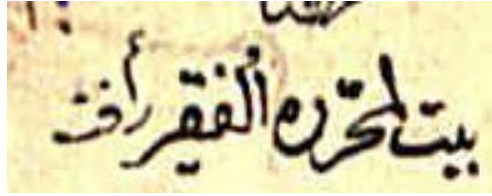 بيت لمحرره الفقير رأفت